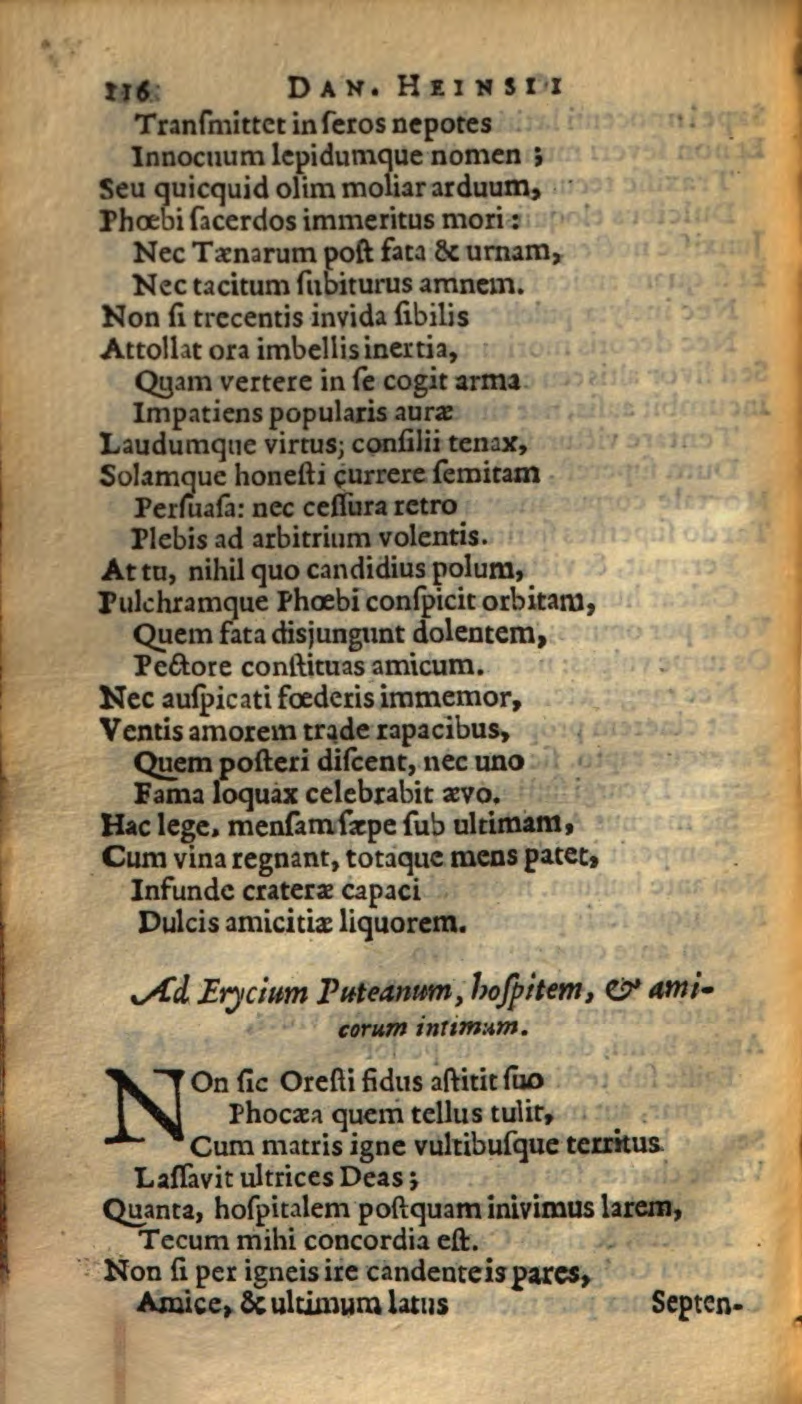 116 DAN. HEINSII
Tranſmittet in ſeros nepotes
Innocuum lepidumque nomen ;
Seu quicquid olim moliar arduum,
Phœbi ſacerdos immeritus mori :
Nec Tænarum poſt fata & urnam,
Nec tacitum ſubiturus amnem.
Non ſi trecentis invida ſibilis
Attollat ora imbellis inertia,
Quam vertere in ſe cogit arma
Impatiens popularis auræ
Laudumque virtus; conſilii tenax,
Solamque honeſti currere ſemitam
Perſuaſa: nec ceſſura retro
Plebis ad arbitrium volentis.
At tu, nihil quo candidius polum,
Pulchramque Phœbi conſpicit orbitam,
Quem fata disjungunt dolentem,
Pectore conſtituas amicum.
Nec auſpicati fœderis immemor,
Ventis amorem trade rapacibus,
Quem poſteri diſcent, nec uno
Fama loquax celebrabit ævo.
Hac lege, menſam ſæpe ſub ultimam,
Cum vina regnant, totaque mens patet,
Infunde crateræ capaci
Dulcis amicitiæ liquorem.
Ad Erycium Puteanum, hoſpitem, & ami-
corum intimum.
NOn ſic Oreſti fidus aſtitit ſuo
Phocæa quem tellus tulit,
Cum matris igne vultibuſque territus
Laſſavit ultrices Deas ;
Quanta, hoſpitalem poſtquam inivimus larem,
Tecum mihi concordia eſt.
Non ſi per igneis ire candenteis pares,
Amice, & ultimum latus
Septen-